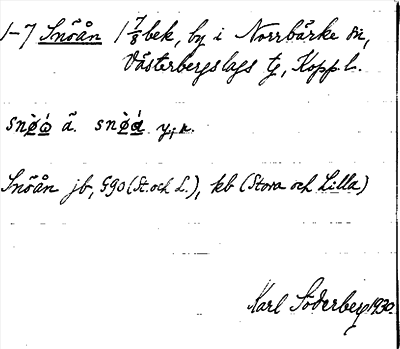 1-7 Snöån 1 7/8 bek, by i Norrbärke sn,
Västerbergslags tg, Kopp l.
snø̀ǿ ä. snø̀á y, k.
Snöån jb, 590 (St. och L.), kb (Stora och Lilla)
Karl Söderberg 1930.